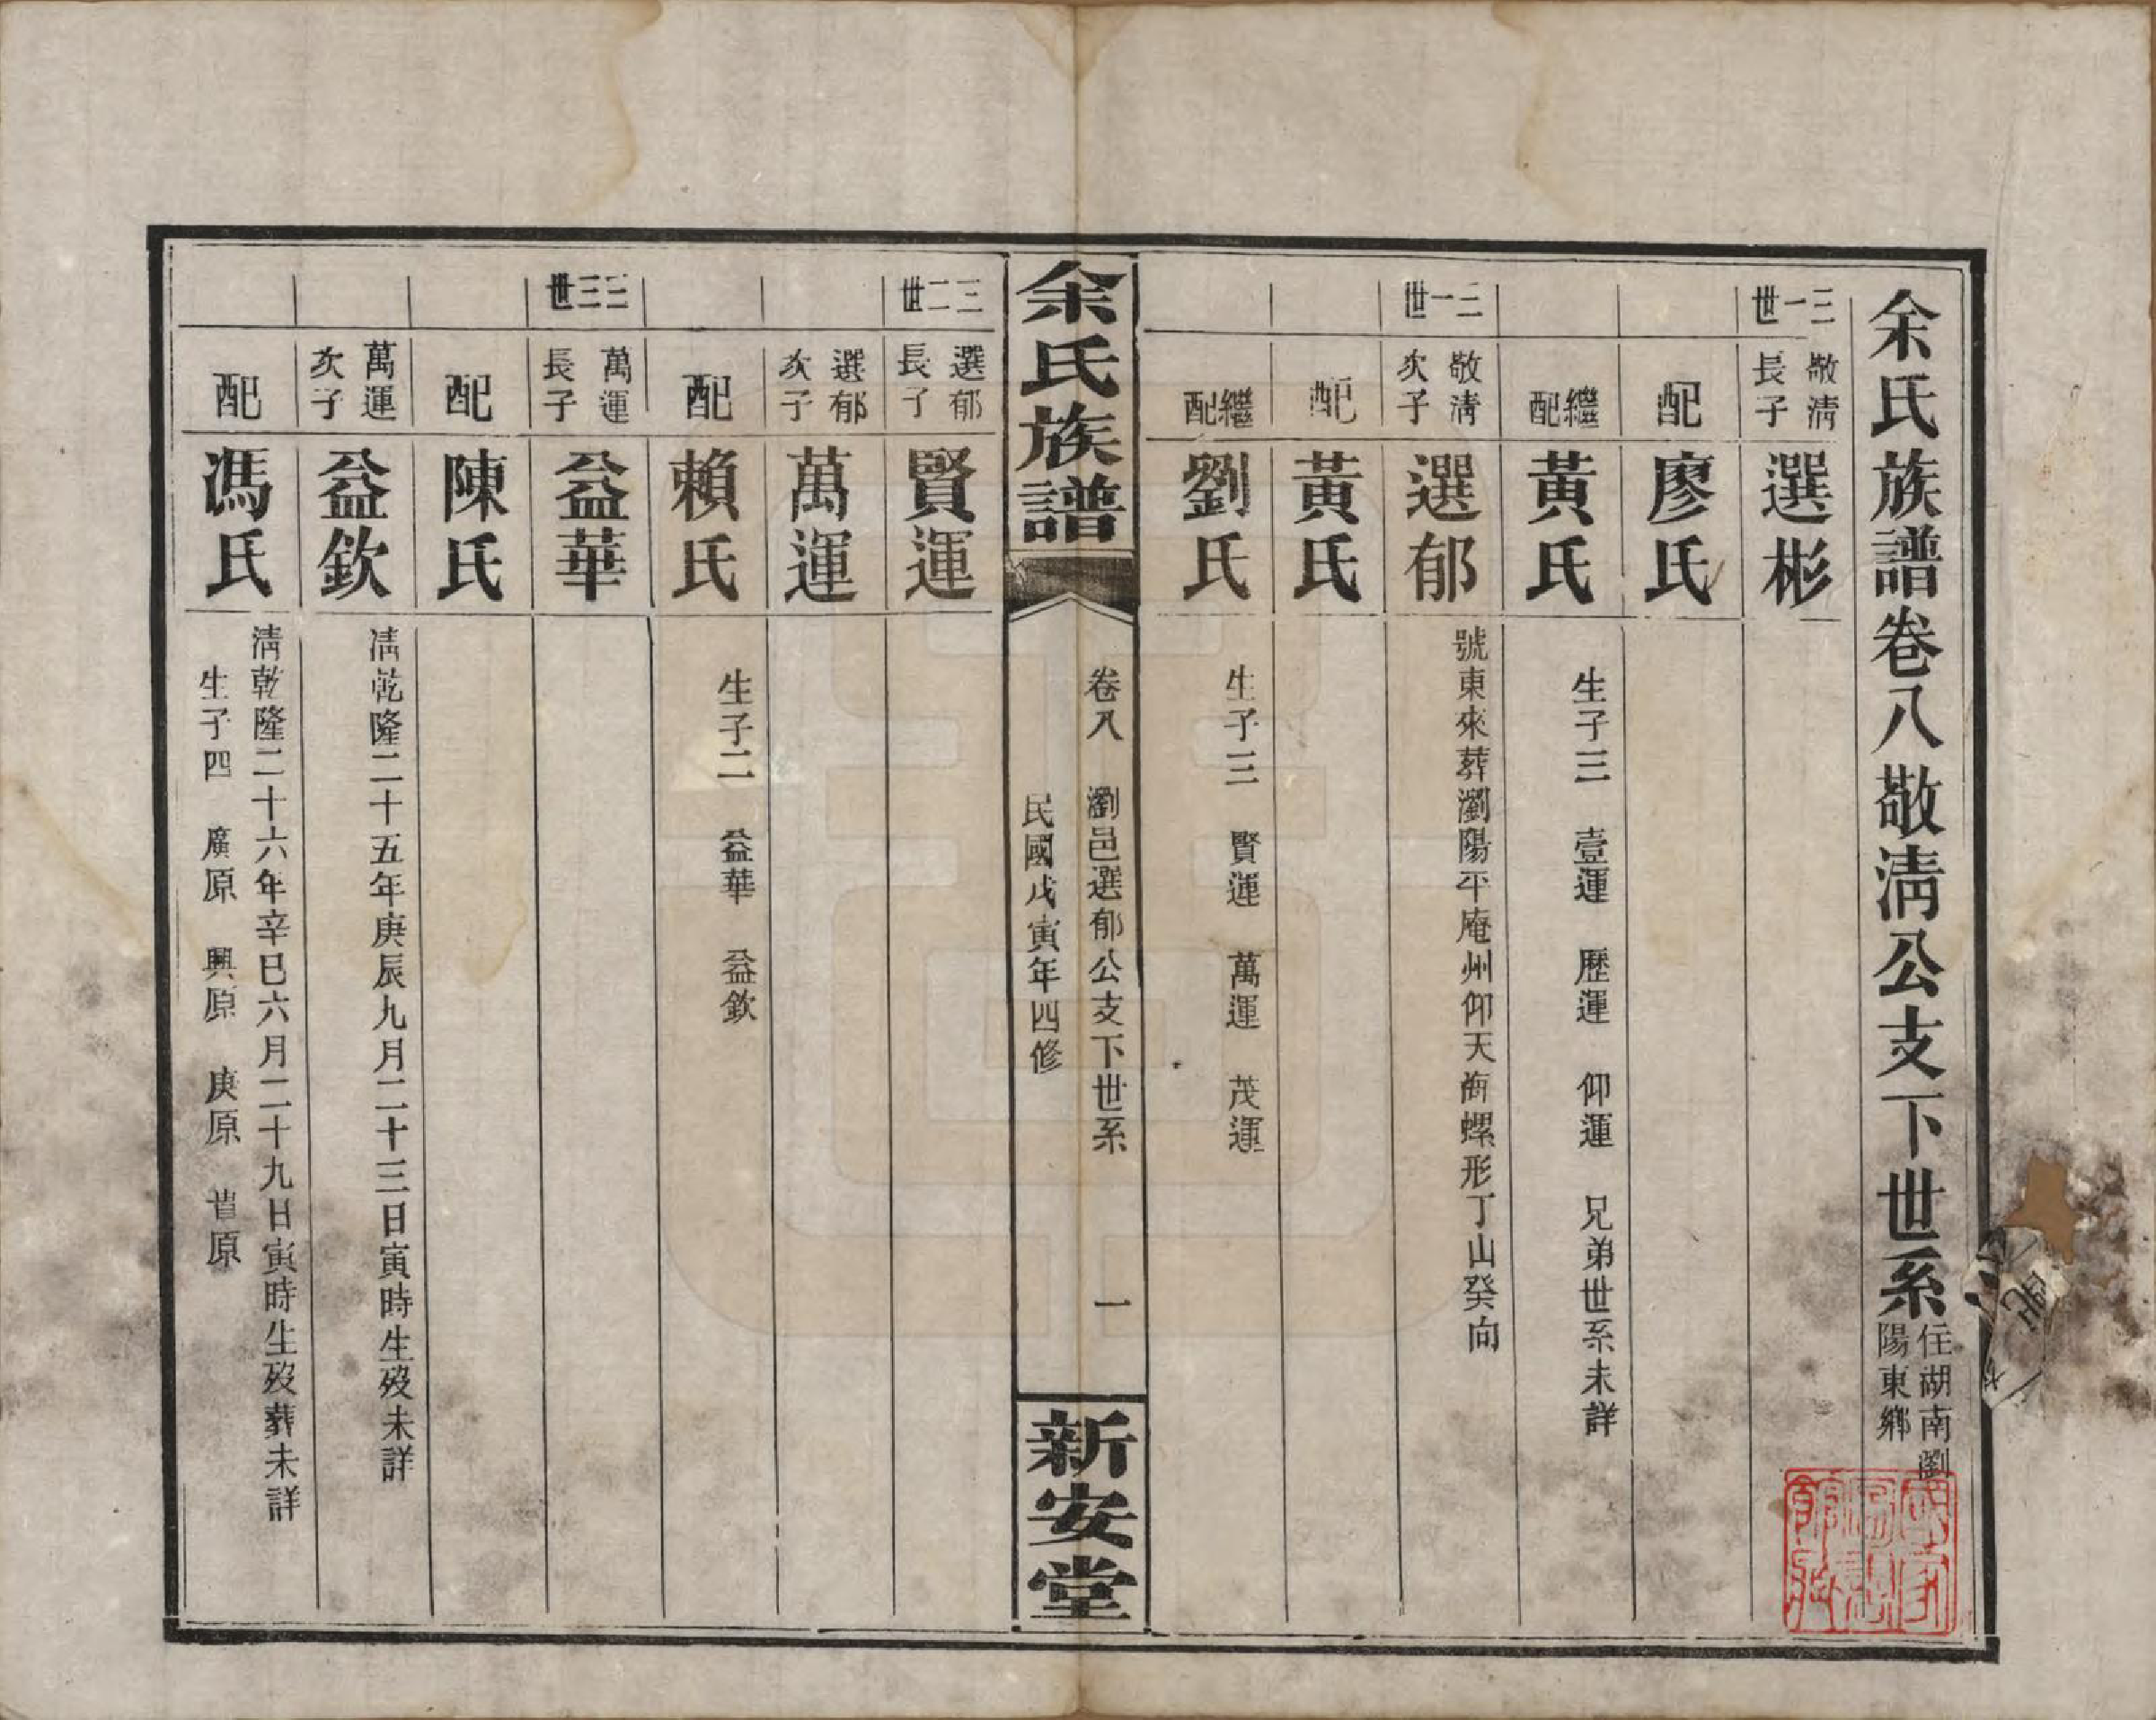 余氏族譜卷八敬清公支下世系
住湖南瀏
陽東鄉
三一世
敬清
長子
選彬
配
廖氏
繼配
黃氏
生子三　壹運　歷運　仰運　兄弟世系未詳
三一世
敬清
次子
選郁
號東來葬瀏陽平庵州仰天海螺形丁山癸向
配
黃氏
繼配
劉氏
生子三　賢運　萬運　茂運
余氏族譜
卷八　瀏邑選郁公支下世系　一
民國戊寅年四修
新安堂
三二世
選郁
長子
賢運
選郁
次子
萬運
配
賴氏
生子二　益華　益欽
三三世
萬運
長子
益華
配
陳氏
萬運
次子
益欽
清乾隆二十五年庚辰九月二十三日寅時生歿未詳
配
馮氏
清乾隆二十六年辛巳六月二十九日寅時生歿葬未詳
生子四　廣原　興原　庚原　原